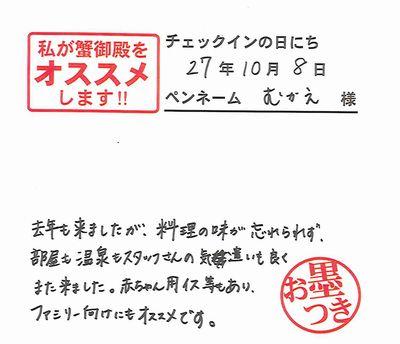 私が蟹御殿を
オススメ
します!!
チェックインの日にち
27年10月8日
ペンネーム むかえ 様
去年も来ましたが、料理の味が忘れられず、
部屋も温泉もスタッフさんの気遣いも良く
また来ました。赤ちゃん用イス等もあり、
ファミリー向けにもオススメです。
お墨つき